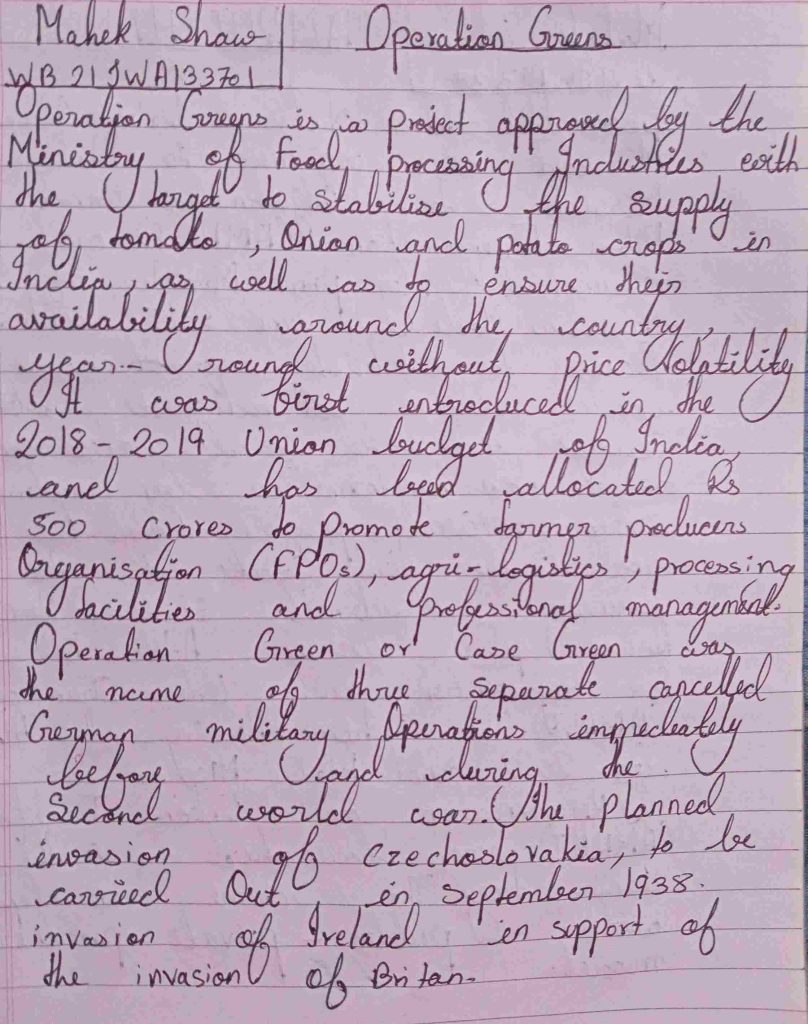 Mahek Shaw
Operation Greens
WB21SWA133701
Operation Greens is a Project approved by the
Ministry of Food, processing Industries with
the target to stabilise the supply
of tomato, Onion and potato crops in
India, as well as to ensure their
availability around the country,
year-round without price Volatility
It was first introduced in the
2018-2019 Union budget of India,
and has been allocated Rs
500 Crores to Promote farmer producers
Organisation (FPOs), agri-logistics, processing
facilities and professional management.
Operation Green or Case Green was
the name of three separate cancelled
German military Operations immediately
before and during the
Second world war. The planned
invasion of Czechoslovakia, to be
carried Out in September 1938.
invasion of Ireland in support of
the invasion of Britan.